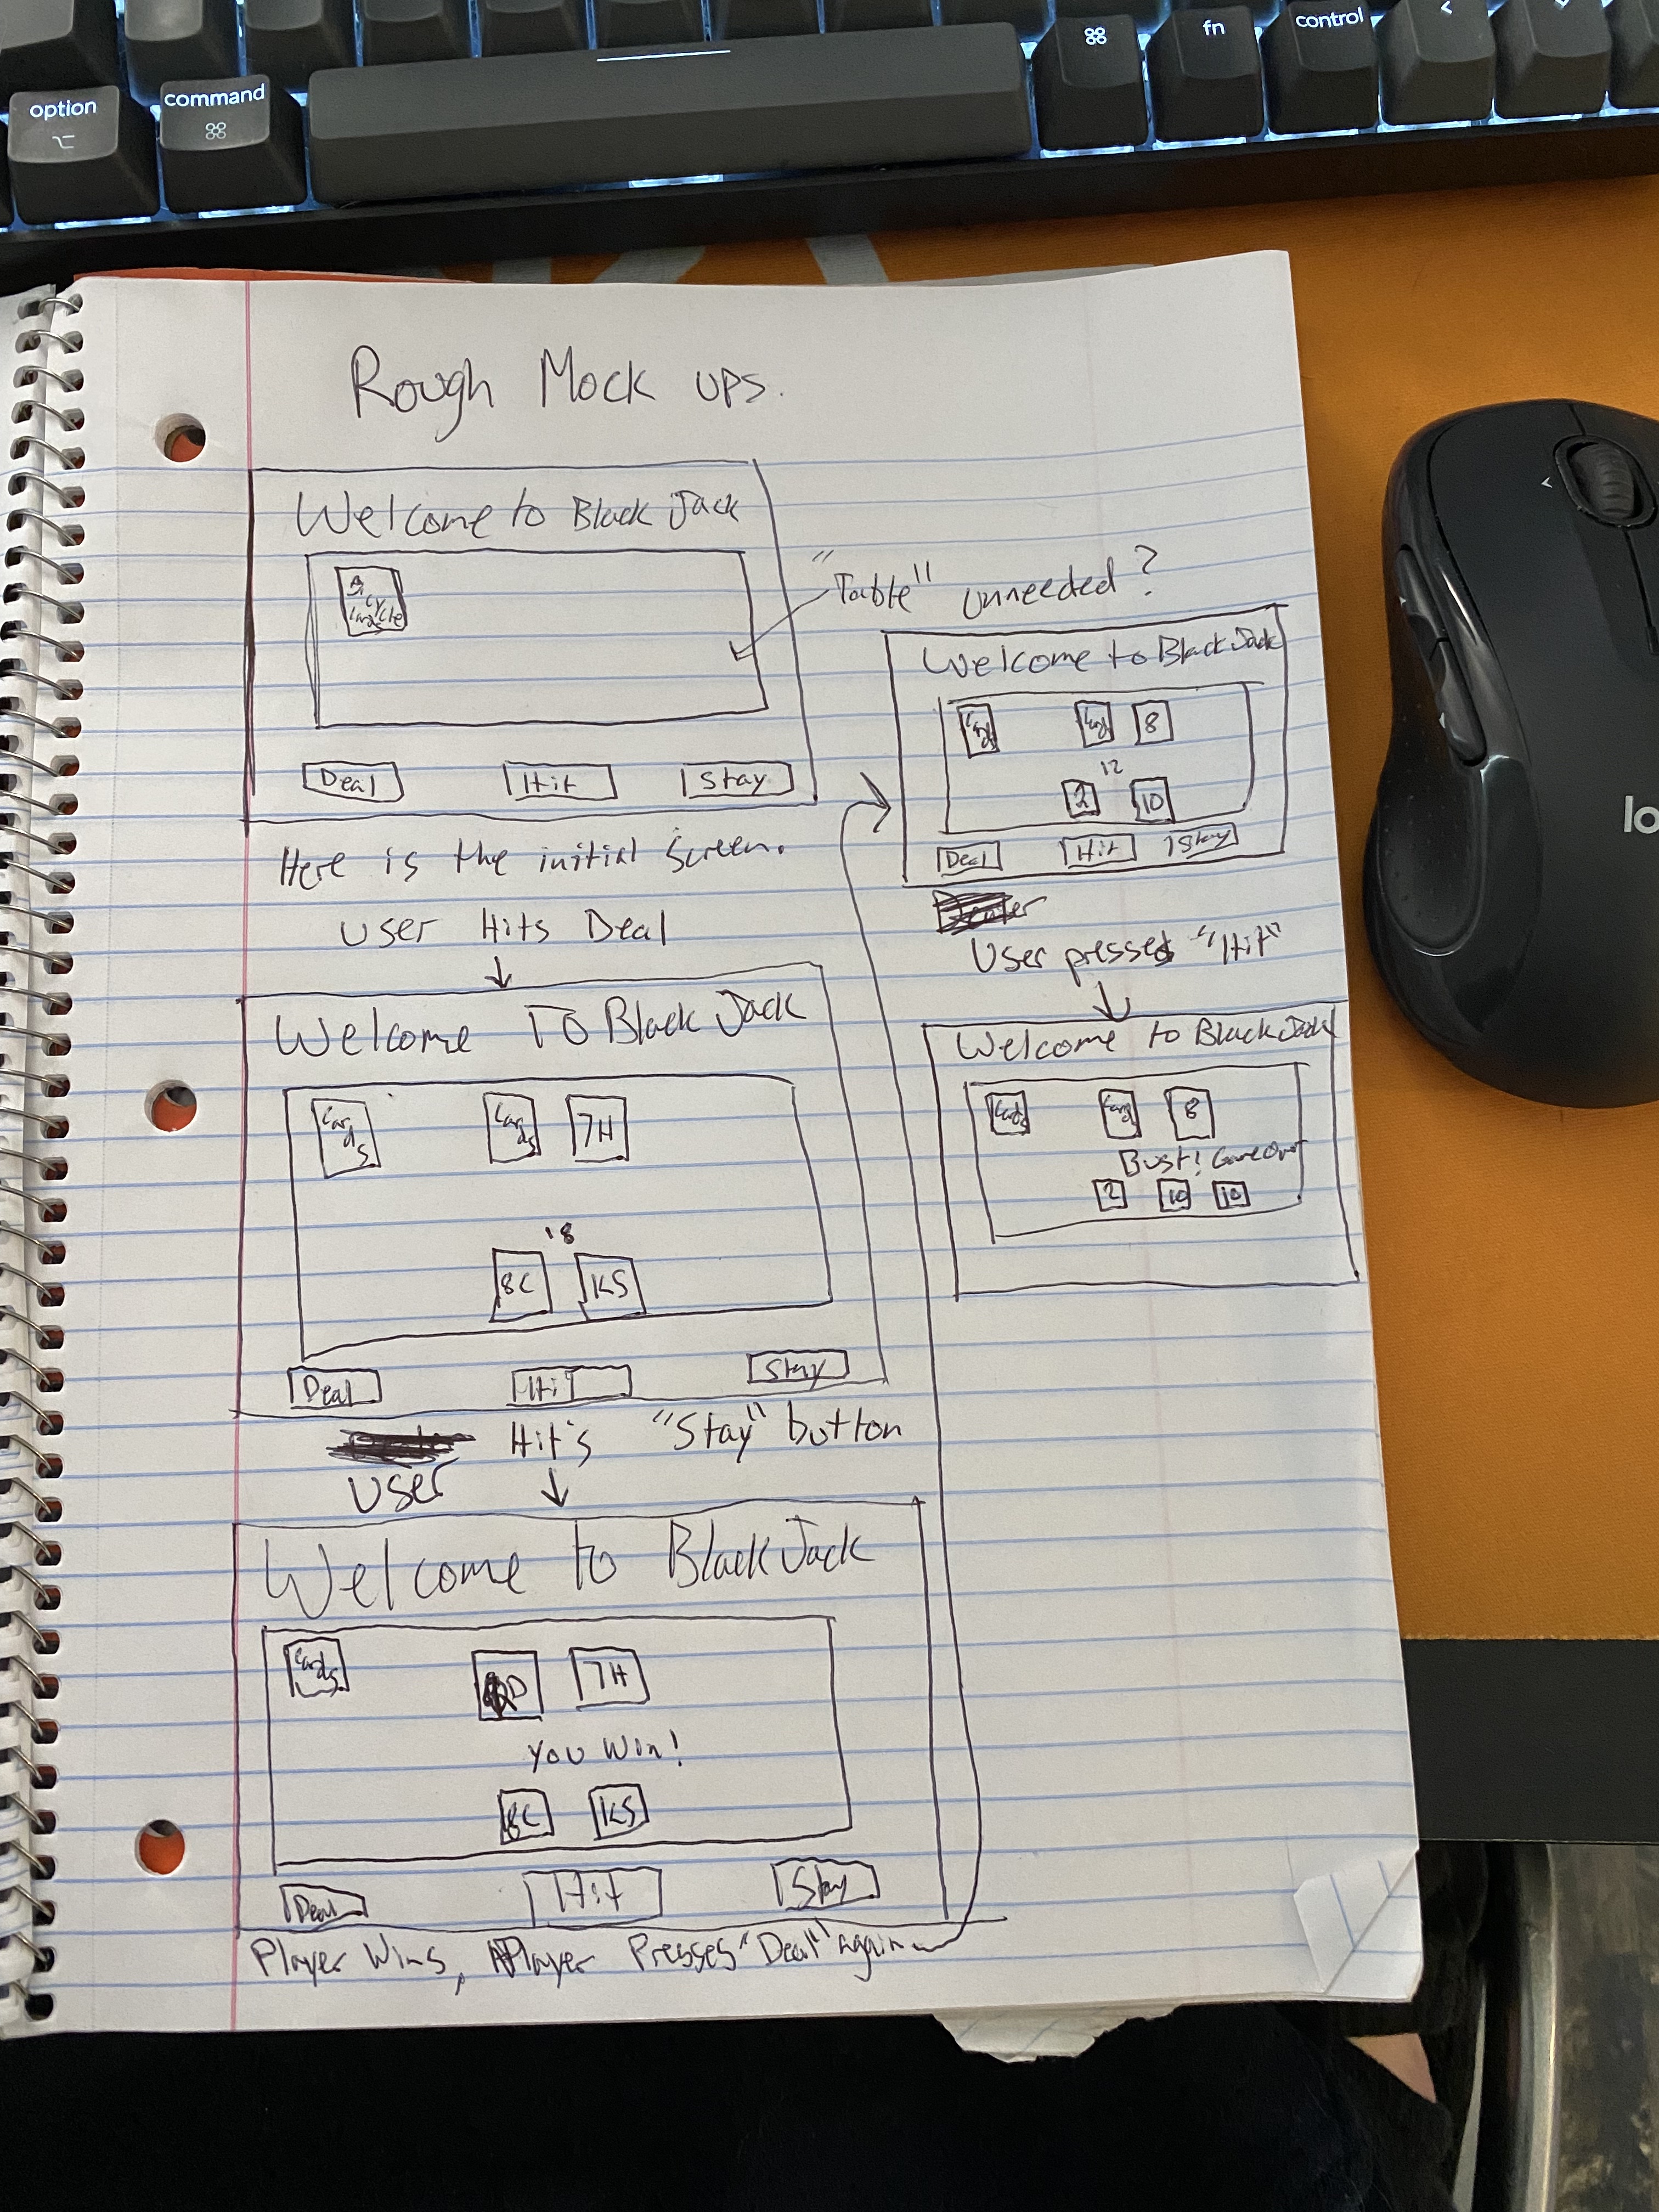 option
command
fn
control
lo
Rough Mock ups.
Welcome to Black Jack
Bicycle
Cards
"Table" unneeded?
Deal Hit Stay
Here is the initial screen.
User Hits Deal
Welcome To Black Jack
Cards Cards 7H
18
8C KS
Deal Hit Stay
User Hit's "Stay" button
Welcome to Black Jack
Cards D 7H
You Win!
8C KS
Deal Hit Stay
Player Wins, Player Presses "Deal" again
Welcome to Black Jack
Cards Cards 8
12
2 10
Deal Hit Stay
User presses "Hit"
Welcome to Black Jack
Cards Cards 8
Bust! Game Over
2 10 10